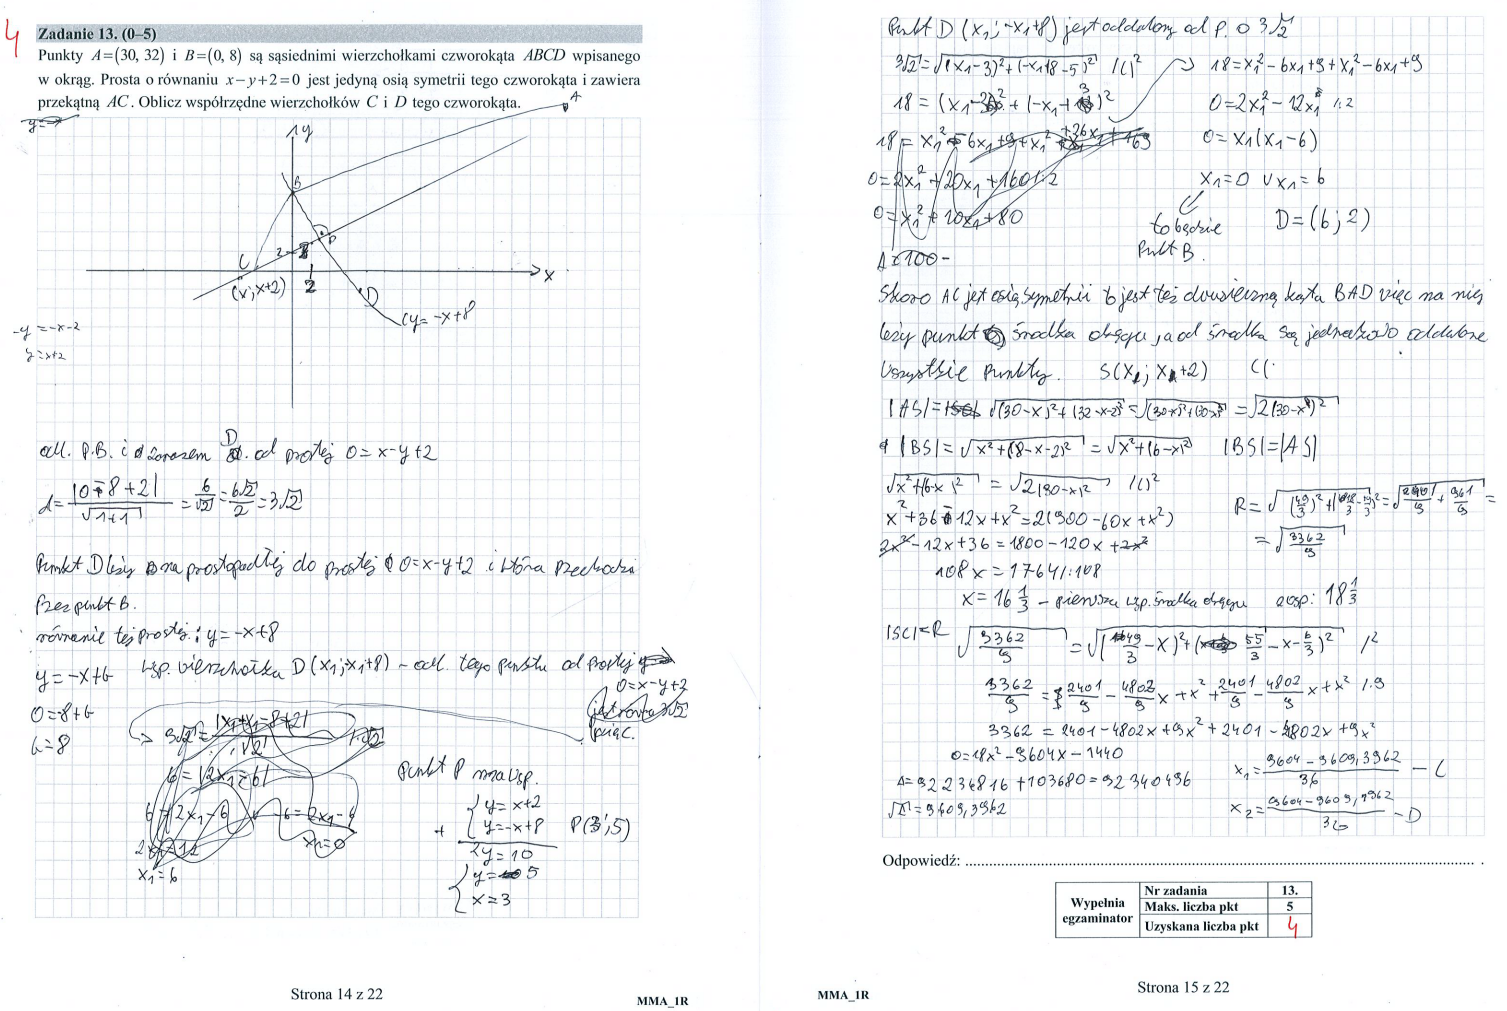 4
Zadanie 13. (0–5)
Punkty A=(30, 32) i B=(0, 8) są sąsiednimi wierzchołkami czworokąta ABCD wpisanego
w okrąg. Prosta o równaniu x−y+2=0 jest jedyną osią symetrii tego czworokąta i zawiera
przekątną AC. Oblicz współrzędne wierzchołków C i D tego czworokąta.
A
y
B
P
2
C
(x; x+2)
2
x
D
y=-x+8
-y=-x-2
y=x+2
odl. p.B. i zarazem D. od prostej 0=x-y+2
d=|0-8+2|/√1+1 = 6/√2 = 6√2/2 = 3√2
Punkt D leży na prostopadłej do prostej 0=x-y+2 i która przechodzi
przez punkt B.
równanie tej prostej: y=-x+8
y=-x+b
0=8+b
b=8
wsp. wierzchołka D(x₁;-x₁+8) - odl. tego punktu od prostej
0=x-y+2
jest równa 3√2
więc.
6=|2x₁-6|
x₁=0
x₁=6
Punkt P ma wsp.
y=x+2
+ y=-x+8
2y=10
y=5
x=3
P(3;5)
Strona 14 z 22
MMA_1R
Punkt D (x₁;-x₁+8) jest oddalony od p. o 3√2
3√2=√(x₁-3)²+(-x₁+8-5)² /()²
18=(x₁-3)²+(-x₁+3)²
0=2x₁²+20x₁+160/:2
0=x₁²+10x₁+80
18=x₁²-6x₁+9+x₁²-6x₁+9
0=2x₁²-12x₁ /:2
0=x₁(x₁-6)
x₁=0 ∨ x₁=6
to będzie
Punkt B.
D=(6;2)
Skoro AC jest osią symetrii to jest też dwusieczną kąta BAD więc na niej
leży punkt środka okręgu, a od środka są jednakowo oddalone
wszystkie punkty. S(x; x+2) C(;
|AS|= √(30-x)²+(32-x-2)² = √(30-x)²+(30-x)² = √2(30-x)²
|BS|=√x²+(8-x-2)² = √x²+(6-x)² |BS|=|AS|
√x²+(6-x)² = √2(30-x)² /()²
x²+36-12x+x²=2(900-60x+x²)
2x²-12x+36=1800-120x+2x²
108x=1764/:108
x=16 1/3 - pierwsza wsp. środka okręgu a wsp: 18 1/3
=√3362/9
|SC|=R
√3362/9 = √(49/3-x)²+(55/3-x-6/3)² /²
3362/9 = 2401/9 - 4802/9 x+x²+2401/9 - 4802/9 x+x² /·9
3362=2401-4802x+9x²+2401-4802x+9x²
0=18x²-9604x-1440
Δ=92234816+103680=92340496
√Δ=9609,3962
x₁=9604-9609,3962/36 - C
Odpowiedź: .......... .
Wypełnia egzaminator
Nr zadania 13.
Maks. liczba pkt 5
Uzyskana liczba pkt 4
MMA_1R
Strona 15 z 22